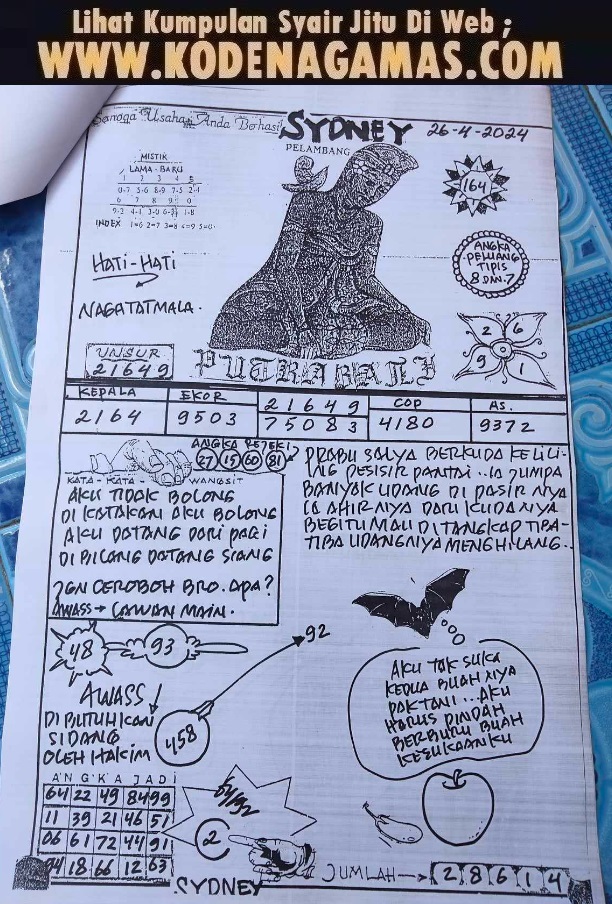 Lihat Kumpulan Syair Jitu Di Web ;
WWW.KODENAGAMAS.COM
Semoga Usaha Anda Berhasil
SYDNEY 26-4-2024
PELAMBANG
MISTIK
LAMA - BARU
1 2 3 4 5
0-7 5-6 8-9 7-5 2-4
6 7 8 9 0
INDEX 1=6 2=7 3=8 4=9 5=0
HATI-HATI
NAGATATMALA.
UNSUR
21649
164
ANGKA
PELUANG
TIPIS
8 DAN 7
2 6
9 1
PUTRA BALI
KEPALA EKOR 21649 COP AS.
2164 9503 75083 4180 9372
ANGKA REJEKI
27 15 60 81
KATA - KATA WANGSIT
AKU TIDAK BOLONG
DI KATAKAN AKU BOLONG
AKU DATANG DARI PAGI
DI BILANG DATANG SIANG
JGN CEROBOH BRO. APA?
AWASS → LAWAN MAIN.
PRABU SALYA BERKUDA KELILI-
NG PESISIR PANTAI...IA JUMPA
BANYAK UDANG DI PASIR NYA
LA AHIRNYA DARI KUDANYA
BEGITU MAU DI TANGKAP TIBA-
TIBA UDANGNYA MENGHILANG..
48 93
92
AWASS!
DI BUTUHKAN
SIDANG
OLEH HAKIM
458
AKU TAK SUKA
KEDUA BUAH NYA
PAK TANI...AKU
HARUS PINDAH
BERBURU BUAH
KESUKAANKU
ANGKA JADI
64 22 49 84 99
11 39 21 46 51
06 61 72 44 91
94 18 66 12 63
64/92
2
SYDNEY
JUMLAH → 2 8 6 1 4